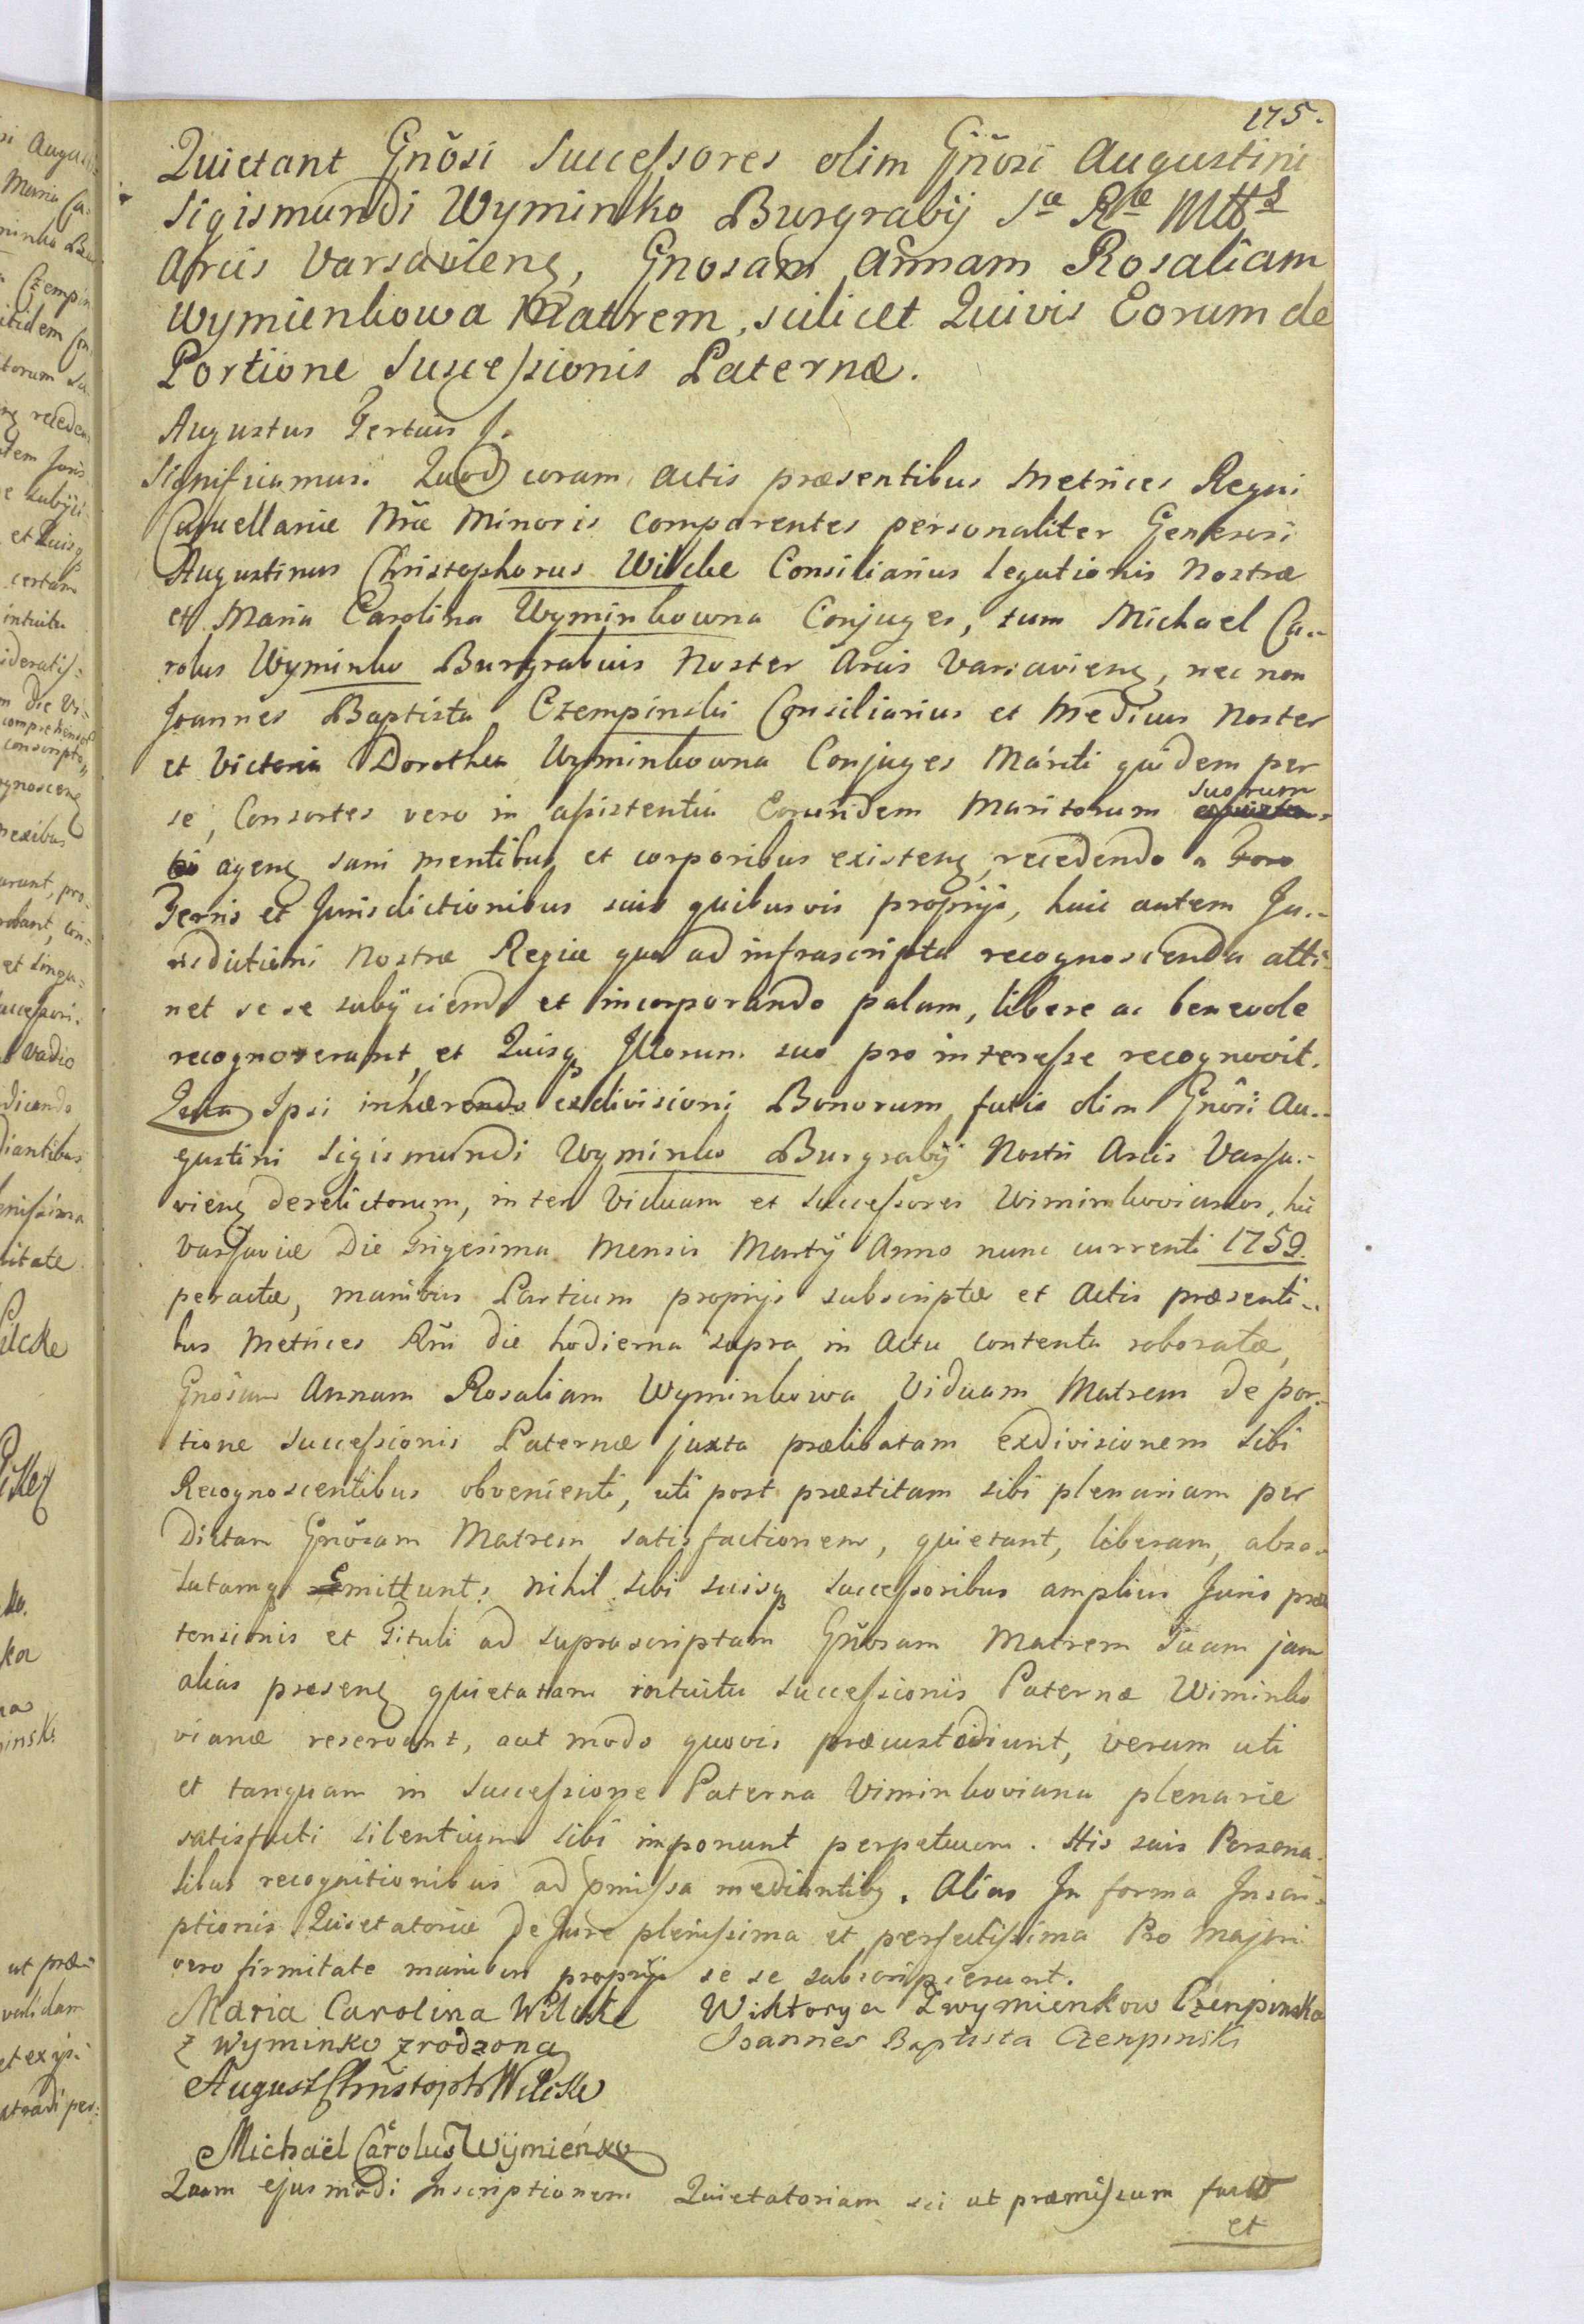 175.
Quietant Gnõsi Successores olim Gñosi Augustini
Sigismundi Wyminko Burgrabij Sæ Ræ Mtts
Arcis Varsavien̄, Gnosam Annam Rosaliam
Wymienkowa Matrem, scilicet Quivis Eorum de
Portione Successionis Paternæ.
Augustus Tertius
Significamus. Quod coram Actis præsentibus Metrices Regni
Cancellariæ Nræ Minoris comparentes personaliter Generosi
Augustinus Christophorus Wilcke Consiliarius legationis Nostræ
et Maria Carolina Wyminkowna Conjuges, tum Michael Ca-
rolus Wyminko Burgrabius Noster Arcis Varsavien̄, nec non
Joannes Baptista Czempinski Consiliarius et Medicus Noster
et Victoria Dorothea Wyminkowna Conjuges Mariti quidem per
se, Consortes vero in assistentia Eorundem Maritorum suorum
agen̄ sani mentibus et corporibus existen̄, recedendo a Foro
Terris et Jurisdictionibus suis quibusvis proprijs, huic autem Ju-
risdictioni Nostræ Regiæ qua ad infrascripta recognoscenda atti-
net se se subijciendo et incorporando palam, libere ac benevole
recognoverunt, et Quisq Illorum suo pro interesse recognovit.
Quia Ipsi inhærendo exdivisioni Bonorum fatis olim Gnosi Au-
gustini Sigismundi Wyminko Burgrabij Nostri Arcis Varsa-
vien̄ derelictorum, inter Viduam et Successores Wiminkovianos, hic
Varsaviæ Die Trigesima Mensis Martij Anno nunc currenti 1759.
peractæ, manibus Partium proprijs subscriptæ et Actis præsenti-
bus Metrices Rñi die hodierna supra in Actu contenta roboratæ,
Gnosam Annam Rosaliam Wyminkowa Viduam Matrem de por-
tione successionis Paternæ juxta prælibatam exdivisionem sibi
Recognoscentibus obvenienti, uti post præstitam sibi plenariam per
Dictam Gnõsam Matrem satisfactionem, quietant, liberam, abso-
lutamq Emittunt: nihil sibi suisq successoribus amplius Juris præ
tensionis et Tituli ad suprascriptam Gñosam Matrem Suam jam
alias præsen̄ quietatam intuitu successionis Paternæ Wiminko
vianæ reservant, aut modo quovis præcustodiunt, verum uti
et tanquam in Successione Paterna Viminkoviana plenarie
satisfacti silentium sibi imponunt perpetuum. His suis Persona-
libus recognitionibus ad pmissa mediantibq. Alias In forma Inscri-
ptionis Quietatoriæ De Jure plenissima et perfectissima Pro majori
vero firmitate manibus proprijs se se subscripserunt.
Maria Carolina Wilcke Wiktorya Zwymienkow Czenpinska
z Wyminko zrodzona Joannes Baptista Czenpinski
August Christoph Wilcke
Michaël Carolus Wÿmieńko
Quam ejusmodi Inscriptionem Quietatoriam sic ut præmissum facto
et